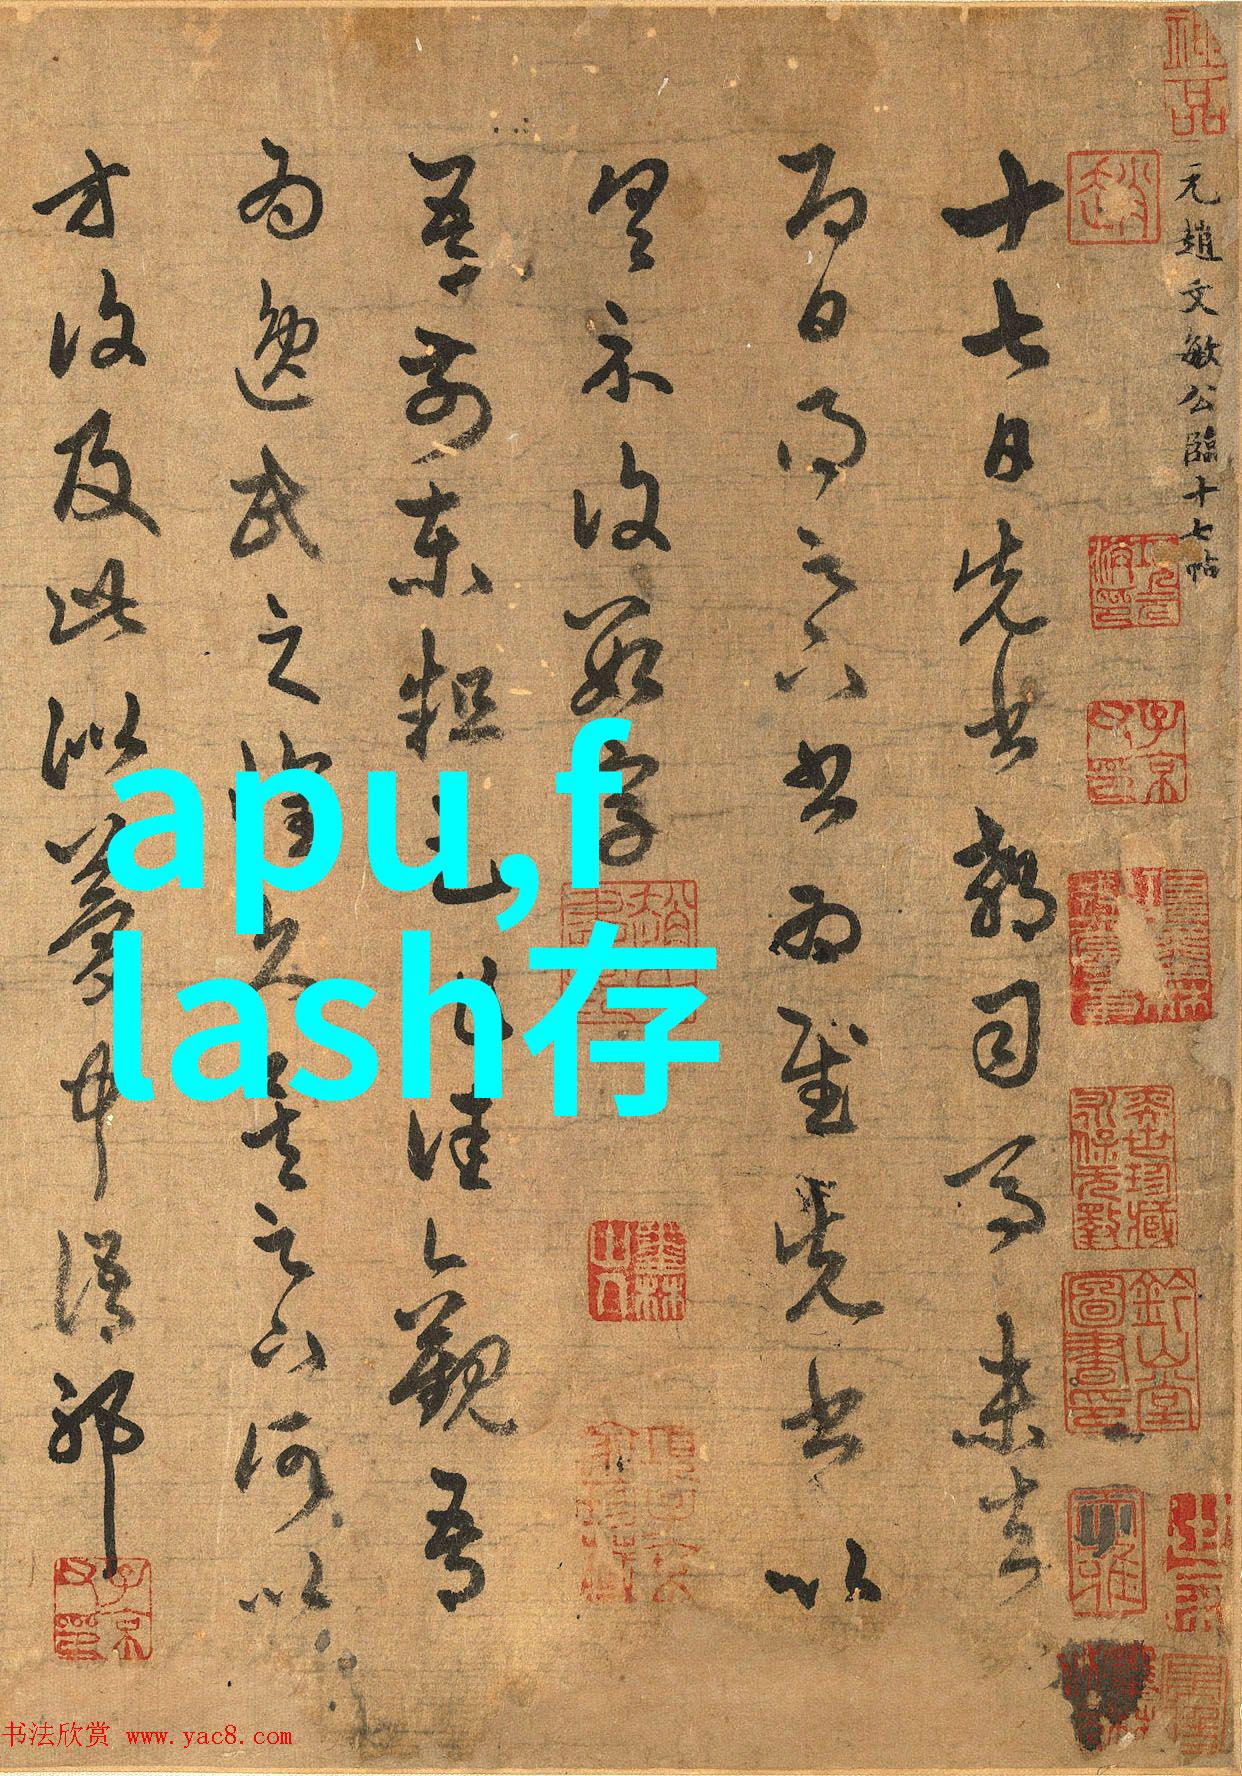 神品
元趙文敏公臨十七帖
趙
項元汴印
子京父印
鈐山堂圖書印
十七日先書郗司馬未去
即日得足下書為慰先書以
具示復數字
吾前東粗足作佳觀吾
為逸民之懷久矣足下何以
方復及此似夢中語耶
子京父印
apu,f
lash存
书法欣赏 www.yac8.com